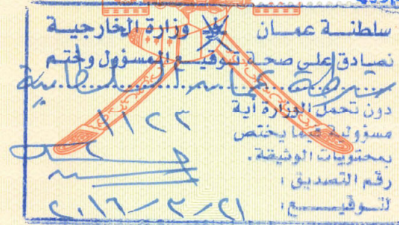 سلطنة عمان وزارة الخارجية
نصادق على صحة توقيع المسؤول وختم
شرطة عمان السلطانية
دون تحمل الوزارة أية
مسؤولية فيما يختص
بمحتويات الوثيقة.
رقم التصديق: ١١٢٣
التوقيع:
٢٠١٦/٣/٢١